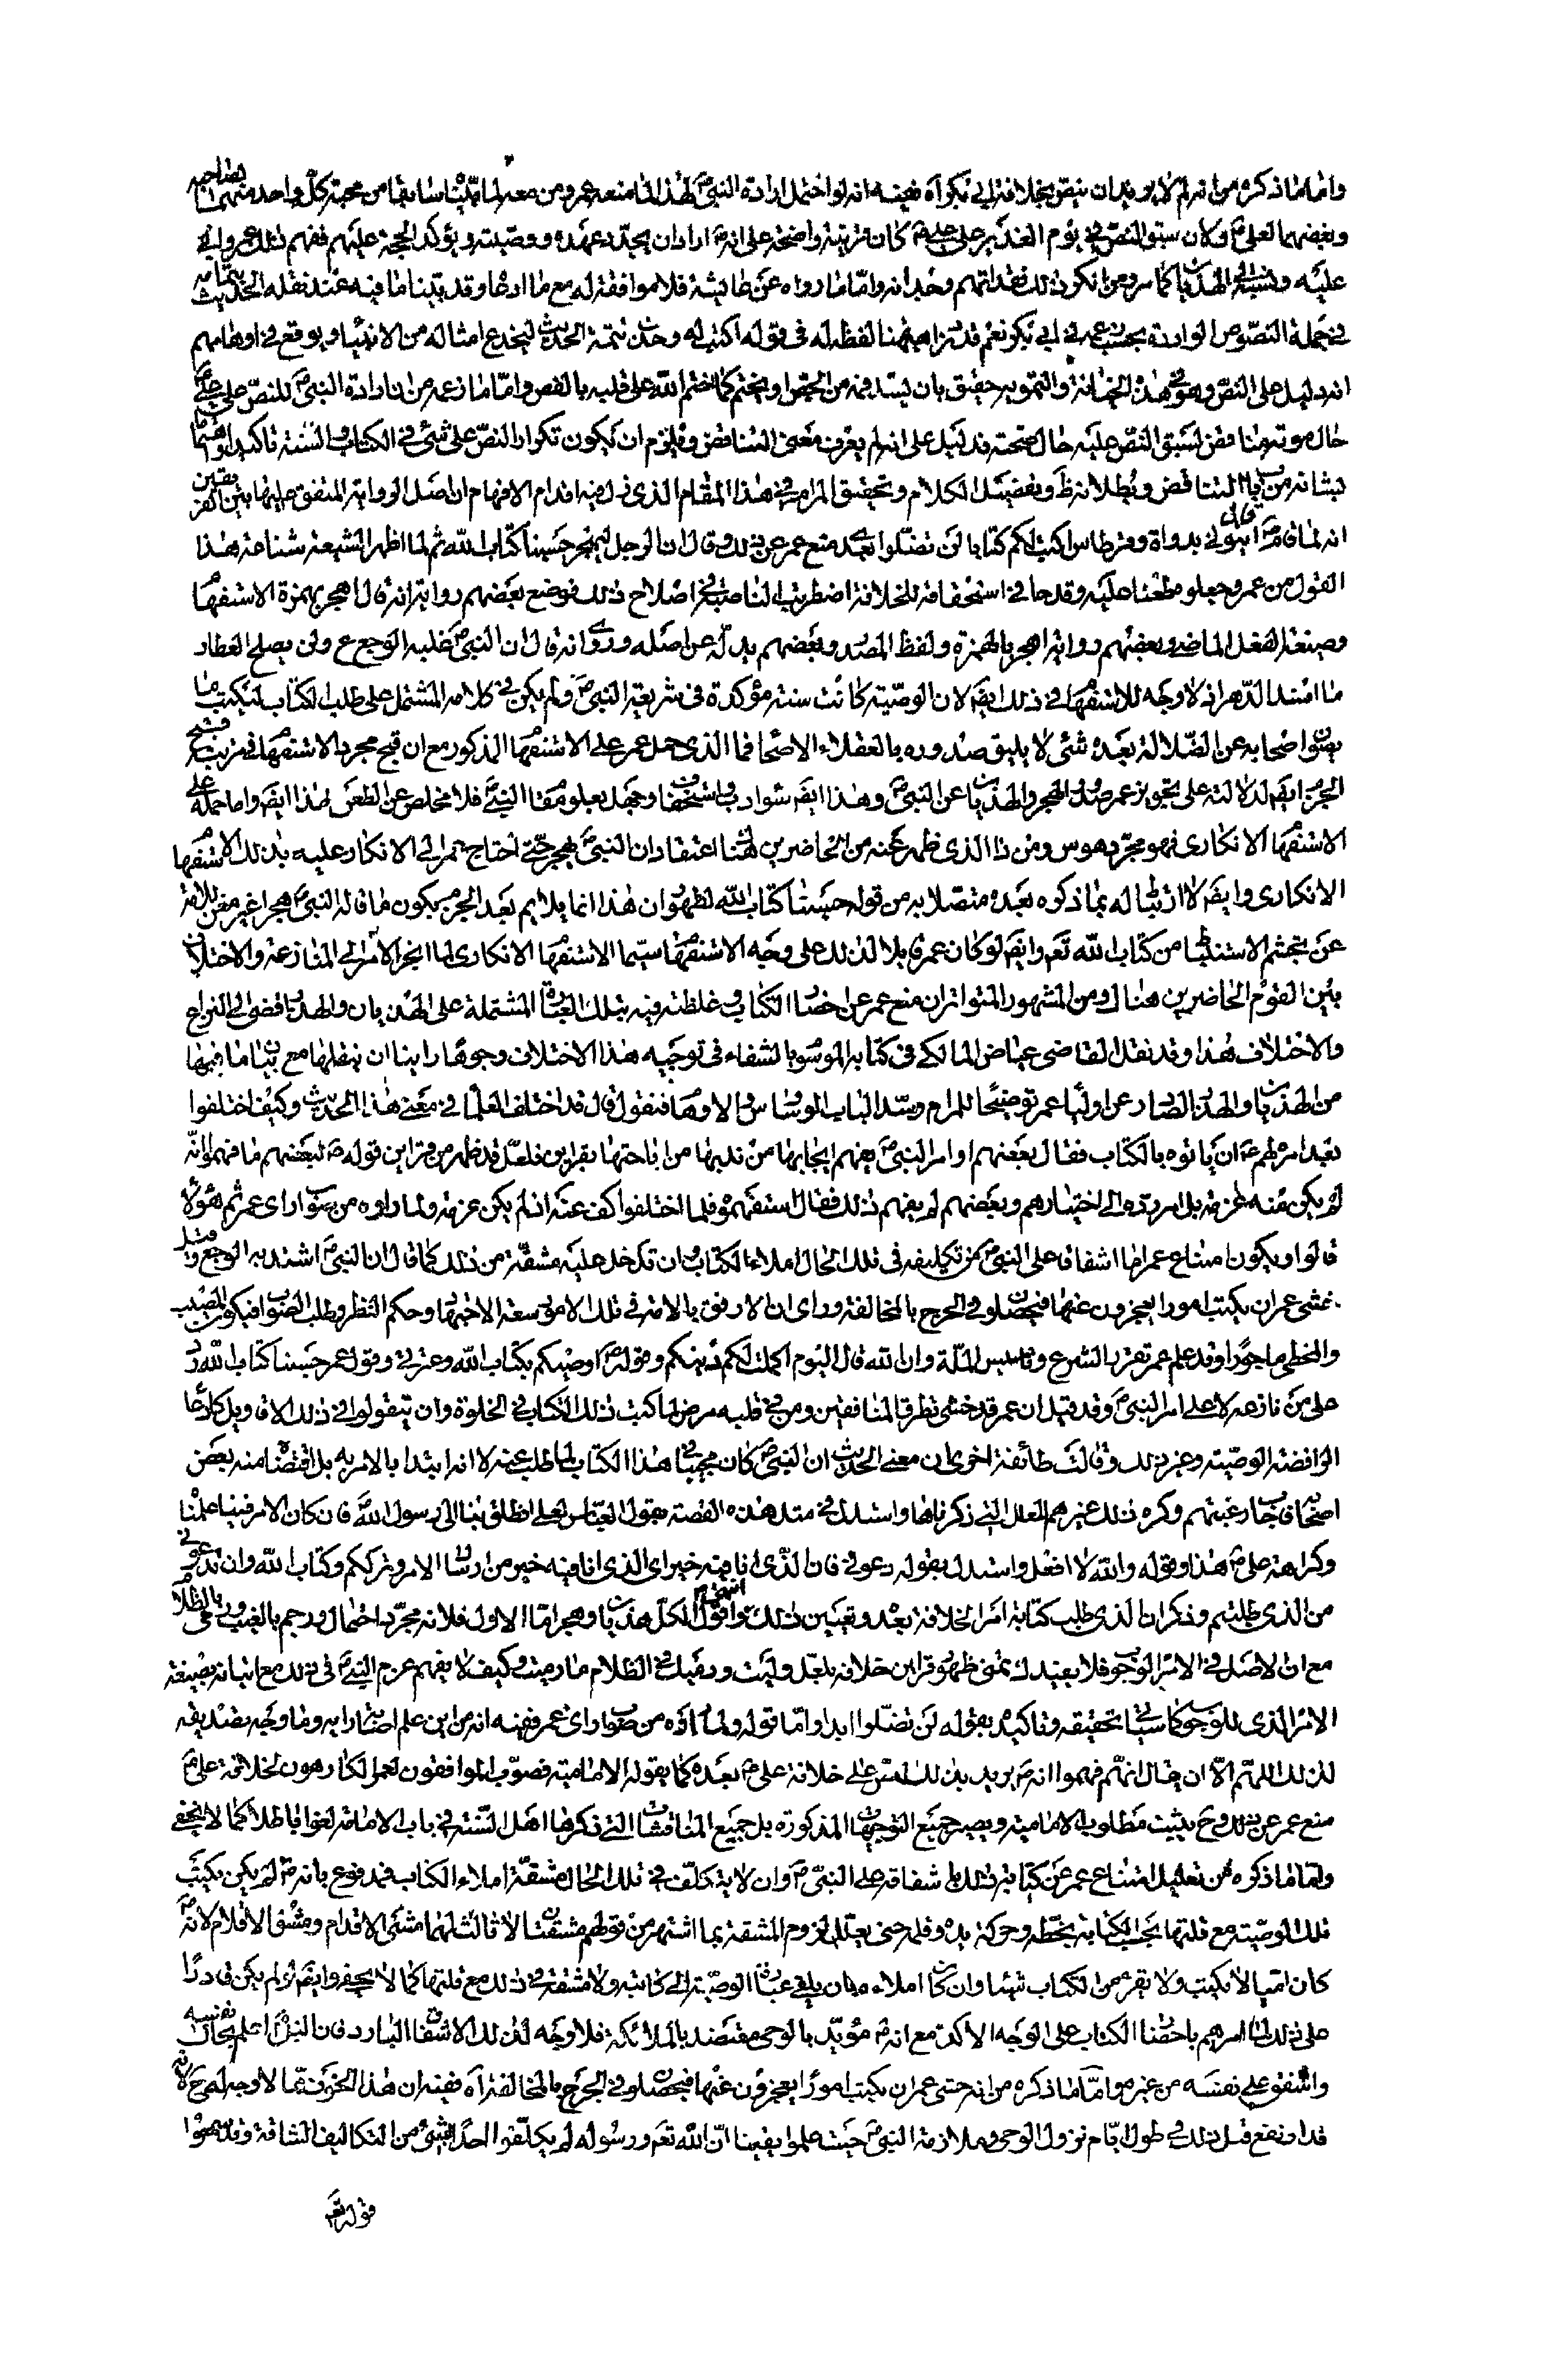 واما ما ذكره من انه لم لا يريد ان ينص بخلافة ابي بكر آه ففيه انه لو احتمل ارادة النبي ص لهذا لما منعه عمر ومن معه لما بيّنا سابقا من محبة كل واحد منهما لصاحبه
وبغضهما لعلي ع ولان سبق النص في يوم الغدير على علي ع كان قرينة واضحة على انه ص اراد ان يجدد عهده ووصيته ويؤكد الحجة عليهم ففهم ذلك عمر
عليه ونسبته الى الهذيان كما مر ومن انكر ذلك فقد اتهم وجدانه واما ما رواه عن عائشة فلا موافقة له مع ما ادعاه وقد بينا ما فيه عند نقله الحديث بتمامه
في جملة النصوص الواردة بحسب زعمه في ابي بكر نعم قد زاد ههنا لفظ له في قوله اكتب له وحذف تتمة الحديث ليخدع امثاله من الاغبياء ويوقع في اوهامهم
انه دليل على النص وهو في هذه الخيانة والتمويه حقيق بان يسد فمه من الجص او يختم كما ختم الله على قلبه بالفص واما ما زعمه من ان ارادة النبي ص للنص على علي ع
حال موته مناقض لسبق النص عليه حال صحته فدليل على انه لم يعرف معنى التناقض ويلزم ان يكون تكرار النص على شئ في الكتاب والسنة تأكيدا واهتماما
بشانه من باب التناقض وبطلانه ظ وتفصيل الكلام وتحقيق المرام في هذا المقام الذي زل فيه اقدام الافهام ان اصل الرواية المتفق عليها بين الفريقين
انه لما قال ص ايتوني بدواة وقرطاس اكتب لكم كتابا لن تضلوا بعده منع عمر عن ذلك وقال ان الرجل ليهجر حسبنا كتاب الله ثم لما اظهر الشيعة شناعة هذا
القول من عمر وجعلوه مطعنا عليه وقدحا في استحقاقه للخلافة اضطرب الناصبة في اصلاح ذلك فوضع بعضهم رواية انه قال اهجر بهمزة الاستفهام
وصيغة الفعل الماضي وبعضهم رواية اهجر بالهمزة ولفظ المصدر وبعضهم بدله عن اصله وروى انه قال ان النبي ص غلبه الوجع ع ولن يصلح العطار
ما افسد الدهر اذ لا وجه للاستفهام في ذلك ايضا لان الوصية كانت سنة مؤكدة في شريعة النبي ص ولم يكن في كلامه المشتمل على طلب الكتاب ليكتب ما
يصون اصحابه عن الضلالة بعده شئ لا يليق صدوره بالعقلاء الاصحاء فما الذي حمل عمر على الاستفهام المذكور مع ان قبح هجر بالاستفهام قريب من قبح
الخبر ايضا لدلالته على تجويز عمر صدور الهجر والهذيان عن النبي ص وهذا ايضا سوء ادب واستخفاف وجهل بعلو مقام النبي ص فلا مخلص عن الطعن بهذا ايضا واما حمله على
الاستفهام الانكاري فهو مجرد هوس ومن ذا الذي ظهر عنه من الحاضرين هناك اعتقاد ان النبي ص يهجر حتى احتاج عمر الى الانكار عليه بذلك الاستفهام
الانكاري وايضا لا ارتباط له بما ذكره بعده متصلا به من قوله حسبنا كتاب الله لظهور ان هذا انما يلايم بعد الخبر بكون ما قاله النبي ص هجرا غير مغن للامة
عن تجشم الاستنباط من كتاب الله تعالى وايضا لو كان عمر قايلا لذلك على وجه الاستفهام سيما الاستفهام الانكاري لما انجر الامر الى المنازعة والاختلاف
بين القوم الحاضرين هناك ومن المشهور المتواتر ان منع عمر عن احضار الكتاب وغلظته فيه بتلك العبارة المشتملة على الهذيان والهذر افضى الى النزاع
والاختلاف هذا وقد نقل القاضي عياض المالكي في كتابه الموسوم بالشفاء في توجيه هذا الاختلاف وجوها رأينا ان ننقلها مع بيان ما فيها
من الهذيان والهذر الصادر عن اولياء عمر توضيحا للمرام وسدا لباب الوسواس والاوهام فنقول قال قد اختلف العلماء في معنى هذا الحديث وكيف اختلفوا
بعد امره لهم ع ان ياتوه بالكتاب فقال بعضهم اوامر النبي ص يفهم ايجابها من ندبها من اباحتها بقراين فلعل قد ظهر من قراين قوله ص لبعضهم ما فهموا انه
لم يكن منه عزمة بل امر رده الى اختيارهم وبعضهم لم يفهم ذلك فقال استفهموه فلما اختلفوا كف عنه اذ لم يكن عزمة ولما راوه من صواب راى عمر ثم هؤلاء
قالوا ويكون امتناع عمر اما اشفاقا على النبي ص من تكليفه في تلك الحال املاء الكتاب وان تدخل عليه مشقة من ذلك كما قال ان النبي ص اشتد به الوجع وقيل
خشي عمر ان يكتب امورا يعجزون عنها فيحصلون في الحرج بالمخالفة وراى ان الارفق بالامة في تلك الامور سعة الاجتهاد وحكم النظر وطلب الصواب فيكون المصيب
والمخطئ ماجورا وقد علم عمر تقرر الشرع وتاسيس الملة وان الله قال اليوم اكملت لكم دينكم وقوله ص اوصيكم بكتاب الله وعترتي وقول عمر حسبنا كتاب الله رد
على من نازعه لا على امر النبي ص وقد قيل ان عمر قد خشي تطرق المنافقين ومن في قلبه مرض لما كتب ذلك الكتاب في الخلوة وان يتقولوا في ذلك الاقاويل كادعاء
الرافضة الوصية وغير ذلك وقالت طائفة اخرى ان معنى الحديث ان النبي ص كان مجيبا في هذا الكتاب لما طلب عنه لا انه ابتدا بالامر به بل اقتضاه منه بعض
اصحابه فاجاب رغبتهم وكره ذلك غيرهم للعلل التي ذكرناها واستدل في مثل هذه القصة بقول العباس لعلي انطلق بنا الى رسول الله فان كان الامر فينا علمناه
وكراهة علي ع هذا وقوله والله لا افعل واستدل بقوله دعوني فان الذي انا فيه خير اى الذي انا فيه خير من ارسال الامر وترككم وكتاب الله وان تدعوني
من الذي طلبتم وذكر ان الذي طلب كتابة امر الخلافة بعده وتعيين ذلك انتهى واقول الكل هذيان وهجر اما الاول فلانه مجرد احتمال ورجم بالغيب ورمى في الظلام
مع ان الاصل في الامر الوجوب فلا يفيد تمنى ظهور قراين خلافه بلعل وليت وكيف لا يفهم عزم النبي ص في ذلك مع اتيانه بصيغة
الامر الذي للوجوب كما سياتي تحقيقه وتاكيده بقوله لن تضلوا ابدا واما قوله ولما راوه من صواب راى عمر ففيه انه من اين علم اصابة رايه وما وجه تصديقه
لذلك اللهم الا ان يقال انهم فهموا انه ص يريد بذلك النص على خلافة علي ع بعده كما يقوله الامامية فصوب الموافقون لعمر الكارهون لخلافة علي ع
منع عمر عن ذلك وح يثبت مطلوب الامامية ويصير جميع التوجيهات المذكورة بل جميع المناقشات التي ذكرها اهل السنة في باب الامامة لغوا باطلا كما لا يخفى
واما ما ذكره من تعليل امتناع عمر عن كتابة ذلك باشفاقه على النبي ص وان لا يتكلف في تلك الحال مشقة املاء الكتاب فمدفوع بانه ص لم يكن يكتب
تلك الوصية مع قلتها بحسب الكتابة بخطه وحركة يده وقلمه حتى يعلل لزوم المشقة بما اشتهر من قولهم مشقتان لا ثالث لهما مشى الاقدام ومشق الاقلام لانه ص
كان اميا لا يكتب ولا يقرء من الكتاب شيئا وان كان املاءه بان يلقى عبارة الوصية الى كاتبه ولا مشقة في ذلك مع قلتها كما لا يخفى وايضا لو لم يكن قادرا
على ذلك لما امرهم باحضار الكتاب على الوجه الاكد مع انه ص مؤيد بالوحي معتضد بالملائكة فلا وجه لذلك الاشفاق البارد فان النبي ص اعلم بحال نفسه
واشفق على نفسه من غيره واما ما ذكره من انه خشي عمر ان يكتب امورا يعجزون عنها فيحصلون في الحرج بالمخالفة آه ففيه ان هذا الخوف مما لا وجه له ح لانه
قد ارتفع قبل ذلك في طول ايام نزول الوحي وملازمة النبي ص حيث علموا يقينا ان الله تعالى ورسوله لم يكلفوا احدا بشئ من التكاليف الشاقة وقد سمعوا
قوله تعالى